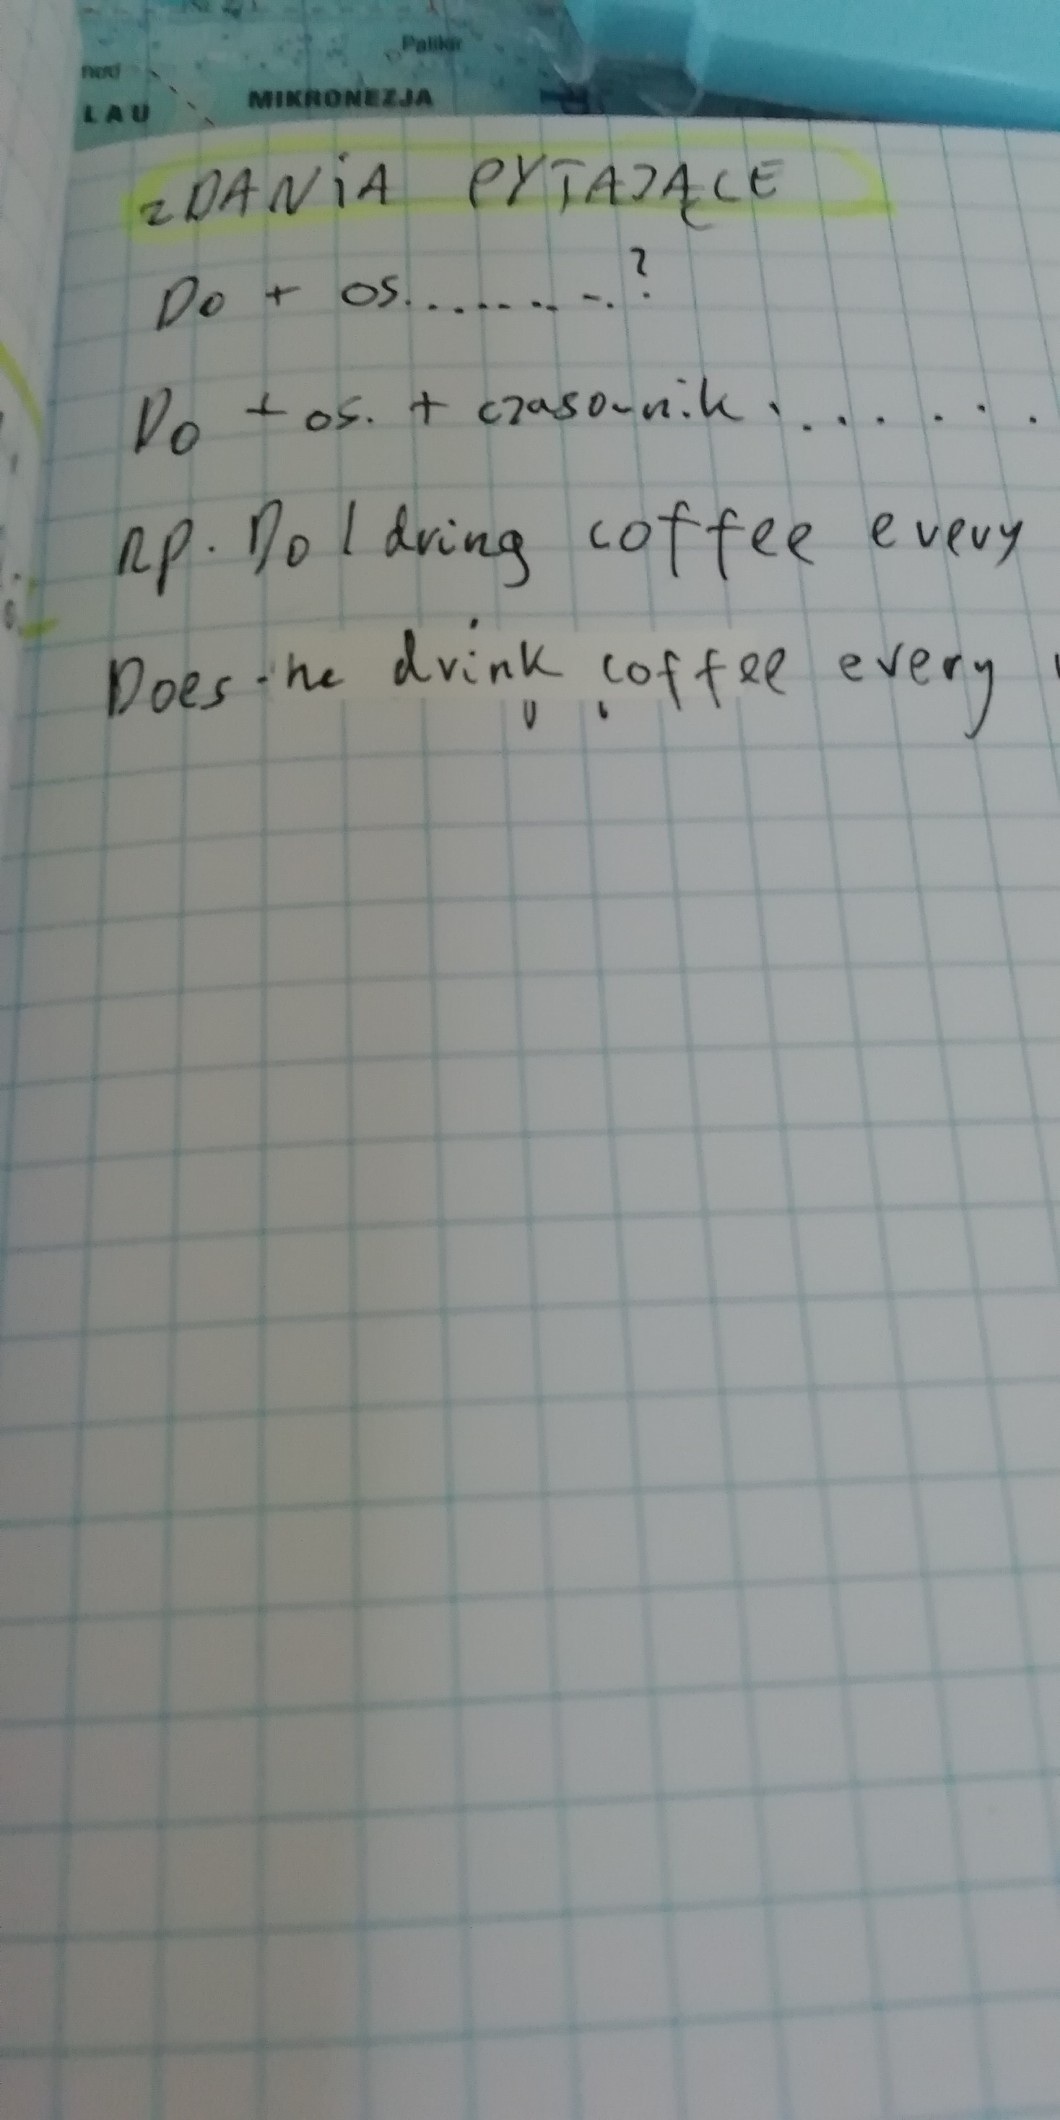 Palikir
LAU
MIKRONEZJA
ZDANiA PYTAJĄCE
Do + os. . . . . . . . ?
Do + os. + czasownik . . . . . .
np. Do I dring coffee every
Does he drink coffee every